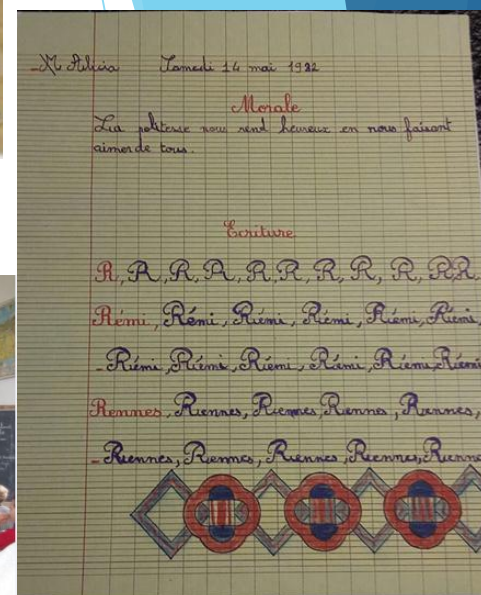 Alicia Samedi 14 mai 1922
Morale
La politesse nous rend heureux en nous faisant
aimer de tous.
Ecriture
R, R, R, R, R, R, R, R, R, R R.
Rémi, Rémi, Rémi, Rémi, Rémi, Rémi
- Rémi, Rémi, Rémi, Rémi, Rémi, Rémi
Rennes, Rennes, Rennes, Rennes, Rennes,
- Rennes, Rennes, Rennes, Rennes, Rennes